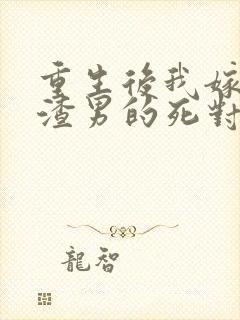 重生後我嫁
渣男的死對
龍智